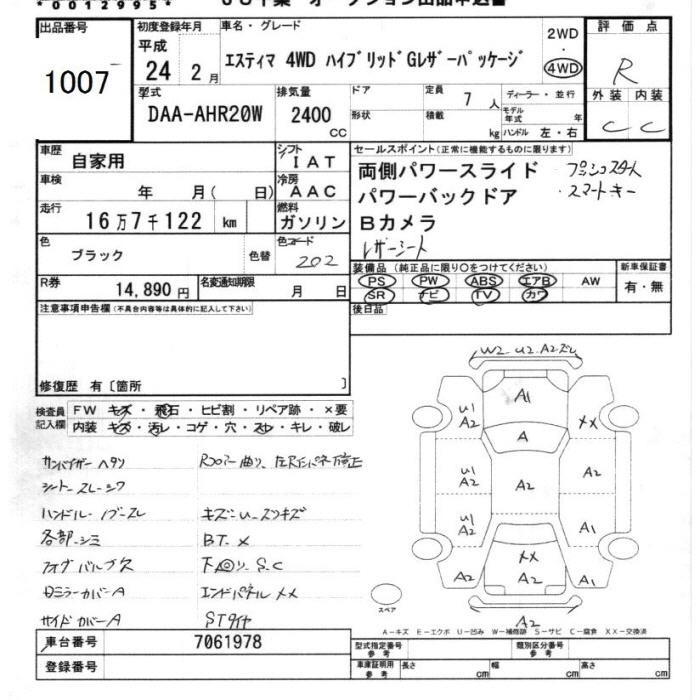 *0012995*
出品番号
1007
初度登録年月
平成
24 2月
車名・グレード
エスティマ 4WD ハイブリッドGレザーパッケージ
2WD
・
4WD
評価点
R
外装 内装
C C
型式
DAA-AHR20W
排気量
2400
CC
ドア
形状
定員 7人
積載 kg
ディーラー・並行
モデル年式 年
ハンドル 左・右
車歴
自家用
シフト
IAT
車検
年 月( 日)
冷房
AAC
走行
16万7千122 km
燃料
ガソリン
色
ブラック
色替
色コード
202
R券
14,890円
名変通知期限
月 日
セールスポイント(正常に機能するものに限ります)
両側パワースライド プッシュスタート
パワーバックドア ・スマートキー
Bカメラ
レザーシート
装備品(純正品に限り○をつけてください)
PS PW ABS エアB AW
SR ナビ TV カワ
新車保証書
有・無
後日品
注意事項申告欄(不具合内容等は具体的に記入して下さい)
修復歴 有〔箇所 〕
検査員記入欄
FW キズ・飛石・ヒビ割・リペア跡・×要
内装 キズ・汚レ・コゲ・穴・スレ・キレ・破レ
サンバイザーヘタリ
シートスレ・シワ
ハンドル・ノブスレ
各部シミ
フォグバルブ欠
ミラーカバーA
サイドカバーA
キズ・U・スリキズ
BT.×
下回リ S.C
エンドパネル××
STタイヤ
W2 U2 A2ズレ
A1
U1
A2
××
A2
A
U1
A2
A2
A2
U1
A2
A1
××
A2
A2
A2
A2
スペア
A-キズ E-エクボ U-凹み W-補修跡 S-サビ C-腐食 XX-交換済
車台番号 7061978
登録番号
型式指定番号
参考
類別区分番号
参考
車庫証明用
参考
長さ cm
幅 cm
高さ cm